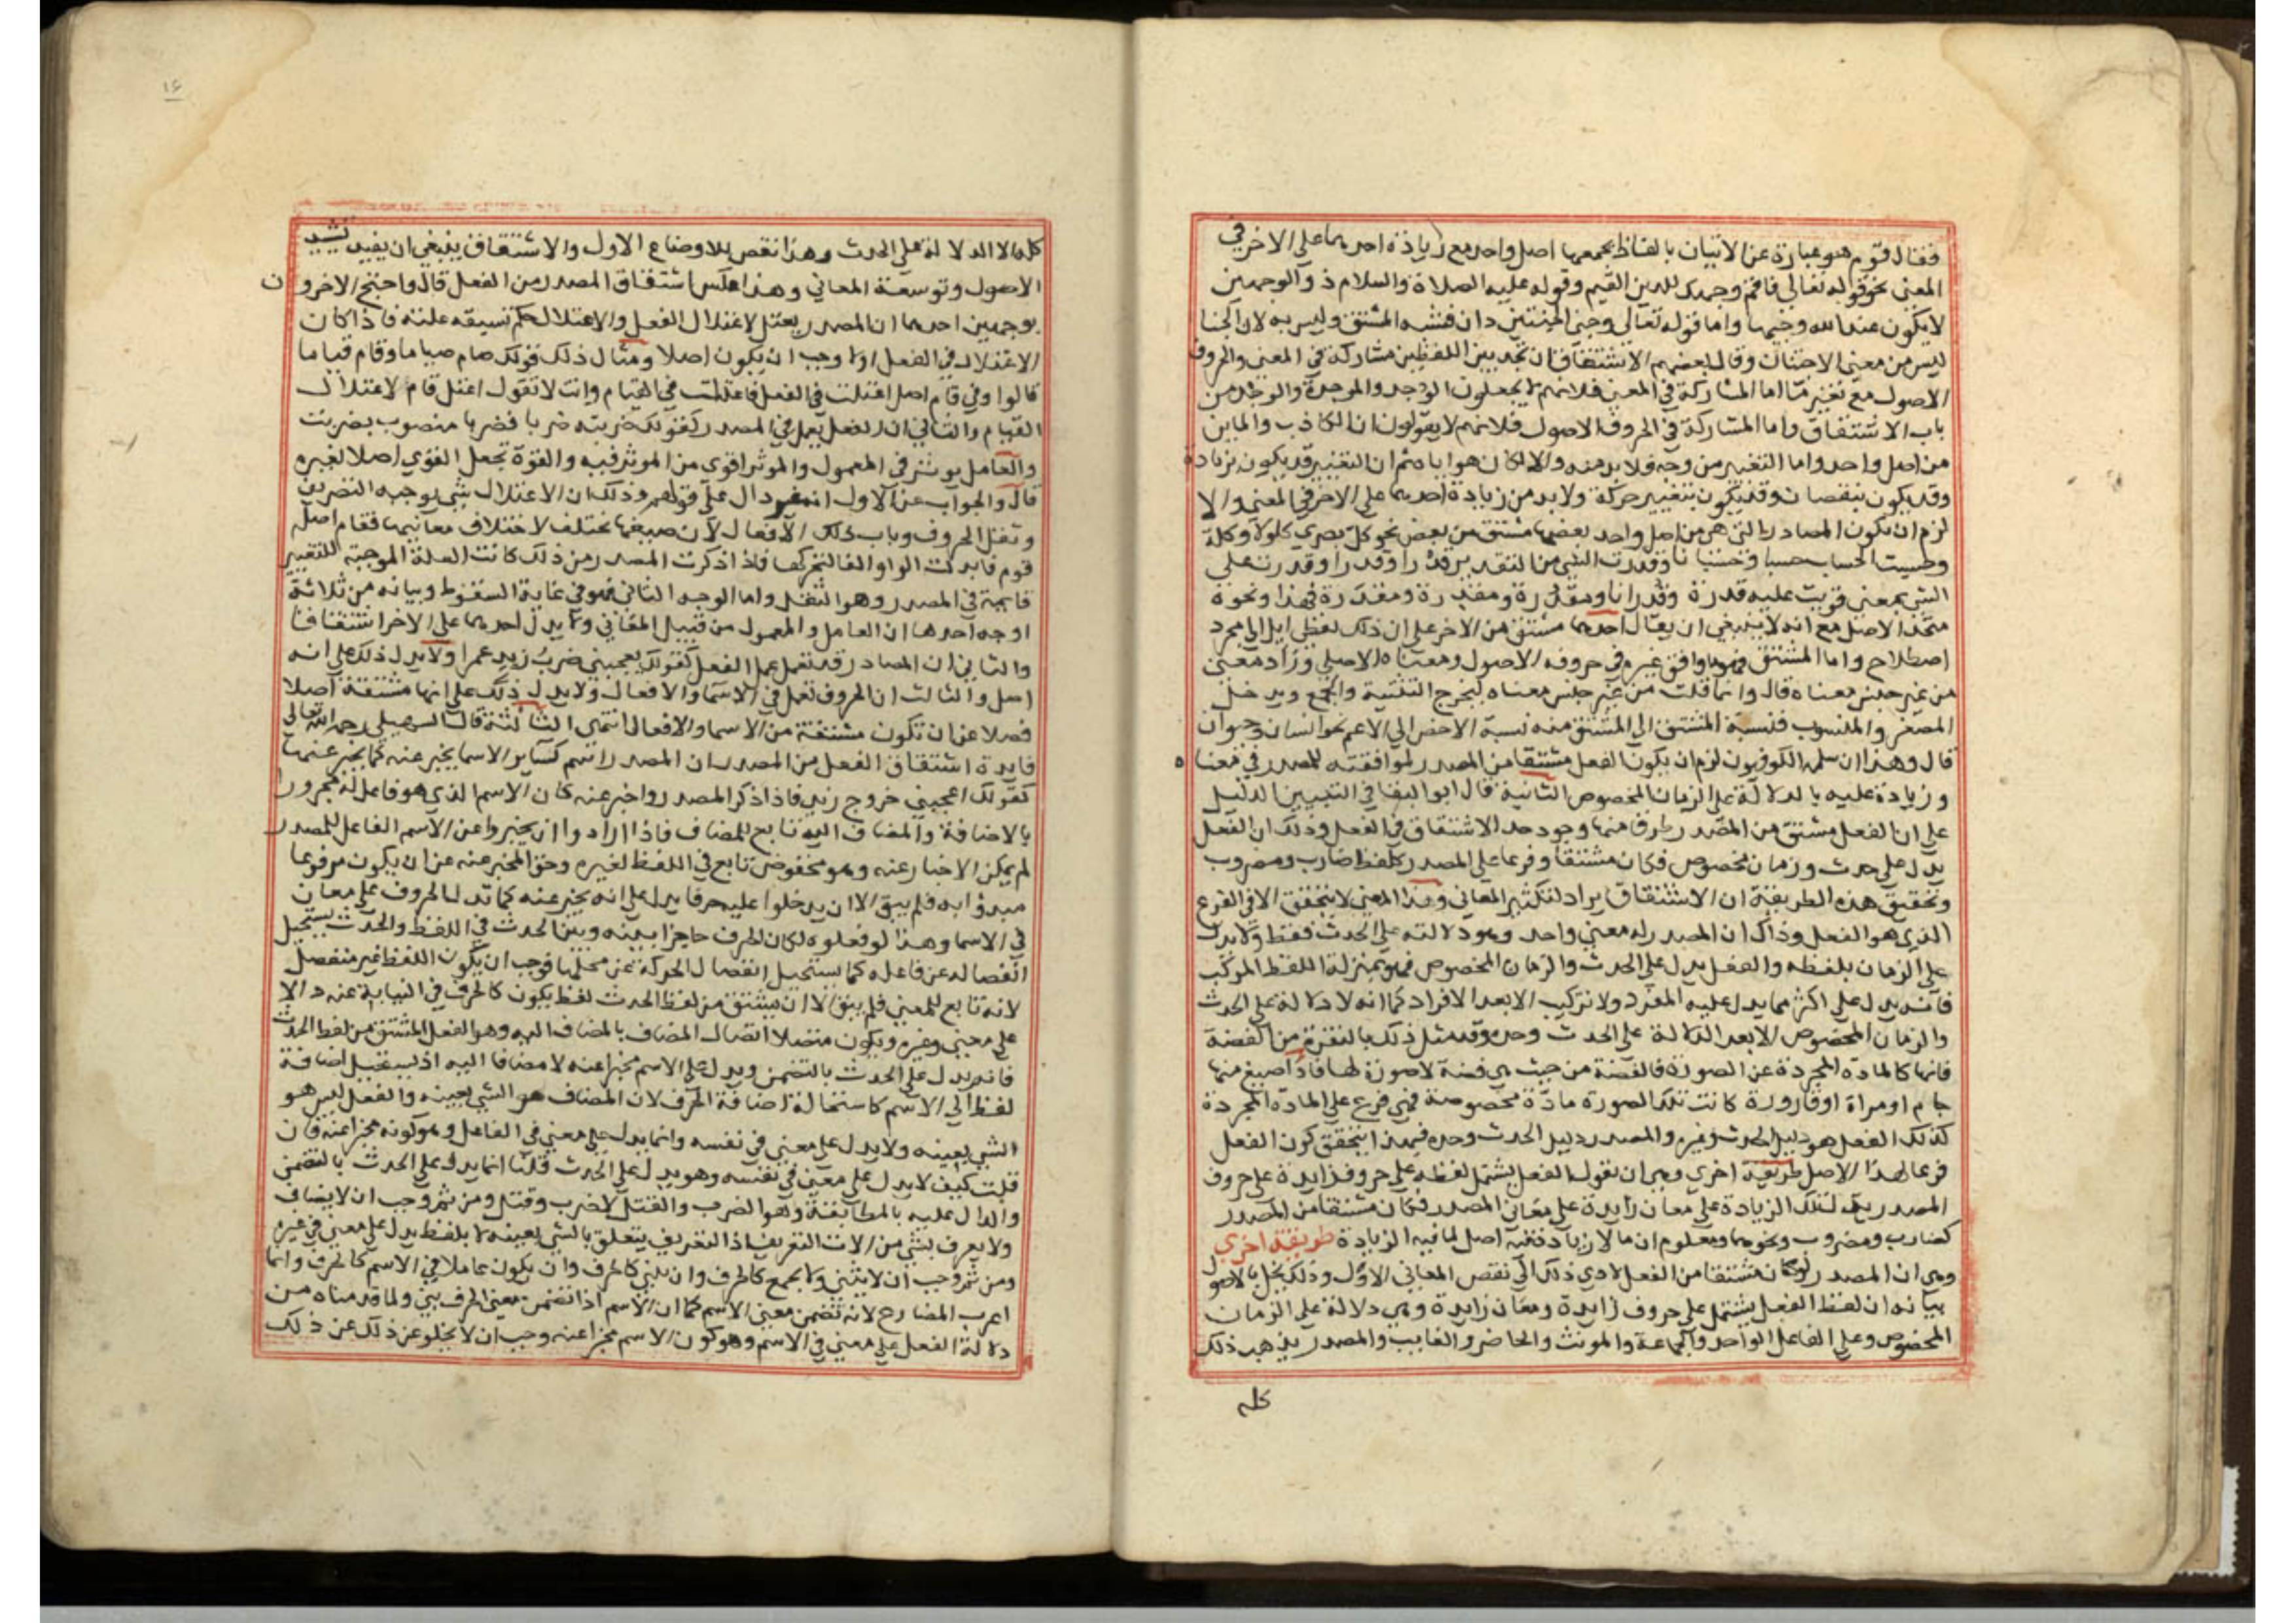 فقال قوم هو عبارة عن الاتيان بالفاظ يجمعها اصل واحد مع زيادة احدهما على الاخر في
المعنى نحو قوله تعالى فاقم وجهك للدين القيم وقوله عليه الصلاة والسلام ذو الوجهين
لا يكون عند الله وجيها واما قوله تعالى وجنى الجنتين دان فشبه المشتق وليس به لان الجنا
ليس من معنى الاجتنان وقال بعضهم الاشتقاق ان تجد بين اللفظين مشاركة في المعنى والحروف
الاصول مع تغيير ما اما المشاركة في المعنى فلانهم لا يجعلون الوجد والموجدة من
باب الاشتقاق واما المشاركة في الحروف الاصول فلانهم لا يقولون ان الكاذب والماين
من اصل واحد واما التغيير من وجه فلا بد منه والا لكان هو اياه ثم ان التغيير قد يكون بزيادة
وقد يكون بنقصان وقد يكون بتغيير حركة ولا بد من زيادة احدهما على الاخر في المعنى والا
لزم ان تكون المصادر التي هي من اصل واحد بعضها مشتق من بعض نحو كل بصري كلولا وكلة
وحسبت الحساب حسبا وحسبانا وقدرت الشي من التقدير قدرا وقدرا وقدرت على
الشي بمعنى قويت عليه قدرة وقدرانا ومقدرة ومقدرة ومقدرة فهذا ونحوه
متحد الاصل مع انه لا ينبغي ان يقال احدهما مشتق من الاخر على ان ذلك لفظي ايل الى مجرد
اصطلاح واما المشتق فهو ما وافق غيره في حروفه الاصول ومعناه الاصلي وزاد معنى
من غير جنس معناه قال وانما قلت من غير جنس معناه ليخرج التثنية والجمع ويدخل
المصغر والمنسوب فنسبة المشتق الى المشتق منه نسبة الاخص الى الاعم نحو انسان وحيوان
قال وهذا ان سلمه الكوفيون لزم ان يكون الفعل مشتقا من المصدر لموافقته للمصدر في معناه
وزيادة عليه بالدلالة على الزمان المخصوص الثانية قال ابو البقا في التبيين الدليل
على ان الفعل مشتق من المصدر طرق منها وجود حد الاشتقاق في الفعل وذلك ان الفعل
يدل على حدث وزمان مخصوص فكان مشتقا وفرعا على المصدر كلفظ ضارب ومضروب
وتحقيق هذه الطريقة ان الاشتقاق يراد لتكثير المعاني وهذا المعنى لا يتحقق الا في الفرع
الذي هو الفعل وذاك ان المصدر له معنى واحد وهو دلالته على الحدث فقط ولا يدل
على الزمان بلفظه والفعل يدل على الحدث والزمان المخصوص فهو بمنزلة اللفظ المركب
فانه يدل على اكثر مما يدل عليه المفرد ولا تركيب الا بعد الافراد كما انه لا دلالة على الحدث
والزمان المخصوص الا بعد الدلالة على الحدث وحده وقد مثل ذلك بالنقرة من الفضة
فانها كالمادة المجردة عن الصورة فالفضة من حيث هي فضة لا صورة لها فاذا صيغ منها
جام او مراة او قارورة كانت تلك الصورة مادة مخصوصة فهي فرع على المادة المجردة
كذلك الفعل هو دليل الحدث وغيره والمصدر دليل الحدث وحده فبهذا يتحقق كون الفعل
فرعا لهذا الاصل طريقة اخرى وهي ان نقول الفعل يشتمل لفظه على حروف زايدة على حروف
المصدر تدل تلك الزيادة على معان زايدة على معاني المصدر فكان مشتقا من المصدر
كضارب ومضروب ونحوهما ومعلوم ان ما لا زيادة فيه اصل لما فيه الزيادة طريقة اخرى
وهي ان المصدر لو كان مشتقا من الفعل لادى ذلك الى نقص المعاني الاول وذلك يخل بالاصول
بيانه ان لفظ الفعل يشتمل على حروف زايدة ومعان زايدة وهي دلالة على الزمان
المخصوص وعلى الفاعل الواحد والجماعة والمونث والحاضر والغايب والمصدر يذهب ذلك
كله
١٤
كله الا الدلالة على الحدث وهذا نقص للاوضاع الاول والاشتقاق ينبغي ان يفيد تشييد
الاصول وتوسعة المعاني وهذا عكس اشتقاق المصدر من الفعل قال واحتج الاخرون
بوجهين احدهما ان المصدر يعتل لاعتلال الفعل والاعتلال حكم تسبقه علته فاذا كان
الاعتلال في الفعل اولا وجب ان يكون اصلا ومثال ذلك قولك صام صياما وقام قياما
قالوا وفي قام اصل اعتلت في الفعل فاعتلت في القيام وانت لا تقول اعتل قام لاعتلال
القيام والثاني ان الفعل يعمل في المصدر كقولك ضربته ضربا فضربا منصوب بضربت
والعامل يوثر في المعمول والموثر اقوى من الموثر فيه والقوة تجعل القوي اصلا لغيره
قال والجواب عن الاول انه غير دال على قولهم وذلك ان الاعتلال شي يوجبه التصريف
وثقل الحروف وباب ذلك الافعال لان صيغها تختلف لاختلاف معانيها فقام اصله
قوم فابدلت الواو الفا لتحركها فاذا ذكرت المصدر من ذلك كانت العلة الموجبة للتغيير
قايمة في المصدر وهو الثقل واما الوجه الثاني فهو في غاية السقوط وبيانه من ثلاثة
اوجه احدها ان العامل والمعمول من قبيل المعاني ولا يدل احدهما على الاخر اشتقاقا
والثاني ان المصادر قد تعمل عمل الفعل كقولك يعجبني ضرب زيد عمرا ولا يدل ذلك على انه
اصل والثالث ان الحروف تعمل في الاسما والافعال ولا يدل ذلك على انها مشتقة اصلا
فضلا عن ان تكون مشتقة من الاسما والافعال انتهى الثالثة قال السهيلي رحمه الله تعالى
فايدة اشتقاق الفعل من المصدر ان المصدر اسم كساير الاسما يخبر عنه كما يخبر عنها
كقولك اعجبني خروج زيد فاذا ذكر المصدر واخبر عنه كان الاسم الذي هو فاعل له مجرورا
بالاضافة والمضاف اليه تابع للمضاف فاذا ارادوا ان يخبروا عن الاسم الفاعل للمصدر
لم يمكن الاخبار عنه وهو مخفوض تابع في اللفظ لغيره وحق المخبر عنه ان يكون مرفوعا
مبدوا به فلم يبق الا ان يدخلوا عليه حرفا يدل على انه يخبر عنه كما تدل الحروف على معان
في الاسما وهذا لو فعلوه لكان الحرف حاجزا بينه وبين الحدث في اللفظ والحدث يستحيل
انفصاله عن فاعله كما يستحيل انفصال الحركة عن محلها فوجب ان يكون اللفظ غير منفصل
لانه تابع للمعنى فلم يبق الا ان يشتق من لفظ الحدث لفظ يكون كالحرف في النيابة عنه دالا
على معنى في غيره ويكون متصلا اتصال المضاف بالمضاف اليه وهو الفعل المشتق من لفظ الحدث
فانه يدل على الحدث بالتضمن ويدل على الاسم مخبرا عنه لا مضافا اليه اذ يستحيل اضافة
لفظ الى الاسم كاستحالة اضافة الحرف لان المضاف هو الشي بعينه والفعل ليس هو
الشي بعينه ولا يدل على معنى في نفسه وانما يدل على معنى في الفاعل وهو كونه مخبرا عنه فان
قلت كيف لا يدل على معنى في نفسه وهو يدل على الحدث قلنا انما يدل على الحدث بالتضمن
والدال عليه بالمطابقة هو الضرب والقتل لا ضرب وقتل ومن ثم وجب ان لا يضاف
ولا يعرف بشي من الات التعريف اذ التعريف يتعلق بالشي بعينه لا بلفظ يدل على معنى في غيره
ومن ثم وجب ان لا يثنى ولا يجمع كالحرف وان يبنى كالحرف وان يكون عاملا في الاسم كالحرف وانما
اعرب المضارع لانه تضمن معنى الاسم كما ان الاسم اذا تضمن معنى الحرف بني ولما قدمناه من
دلالة الفعل على معنى في الاسم وهو كون الاسم مخبرا عنه وجب ان لا يخلو عن ذلك عن ذلك